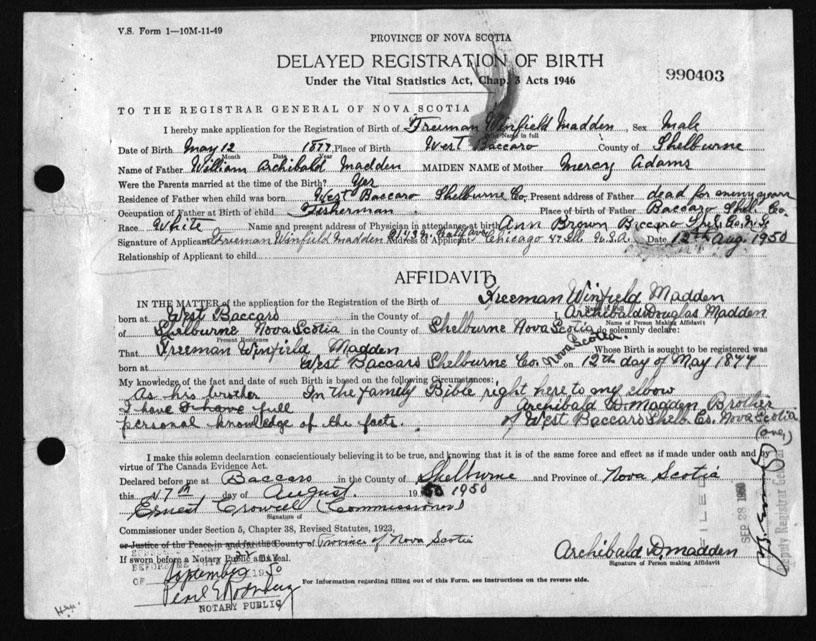 V.S. Form 1—10M-11-49
PROVINCE OF NOVA SCOTIA
DELAYED REGISTRATION OF BIRTH
Under the Vital Statistics Act, Chap. 3 Acts 1946
990403
TO THE REGISTRAR GENERAL OF NOVA SCOTIA
I hereby make application for the Registration of Birth of Freeman Winfield Madden, Sex Male
Name in full
Date of Birth May 12 1877 Place of Birth West Baccaro County of Shelburne
Month Date Year
Name of Father William Archibald Madden MAIDEN NAME of Mother Mercy Adams
Were the Parents married at the time of the Birth? Yes
Residence of Father when child was born West Baccaro Shelburne Co. Present address of Father dead for many years
Occupation of Father at Birth of child Fisherman Place of birth of Father Baccaro Shel. Co.
Race White Name and present address of Physician in attendance at birth Ann Brown Baccaro Shel. Co. N.S.
Signature of Applicant Freeman Winfield Madden Address of Applicant Chicago Ill. U.S.A. Date 12th Aug. 1950
Relationship of Applicant to child
AFFIDAVIT
IN THE MATTER of the application for the Registration of Birth of Freeman Winfield Madden
born at West Baccaro in the County of I, Archibald Douglas Madden
Name of Person Making Affidavit
of Shelburne Nova Scotia in the County of Shelburne Nova Scotia do solemnly declare:
Present Residence
That Freeman Winfield Madden Whose Birth is sought to be registered was
born at West Baccaro Shelburne Co. Nova Scotia. on 12th day of May 1877
My knowledge of the fact and date of such Birth is based on the following Circumstances:
As his brother In the family Bible right here to my elbow
I have I have full Archibald D. Madden Brother
personal knowledge of the facts. of West Baccaro Shelb. Co. Nova Scotia
I make this solemn declaration conscientiously believing it to be true, and knowing that it is of the same force and effect as if made under oath and by
virtue of The Canada Evidence Act.
Declared before me at Baccaro in the County of Shelburne and Province of Nova Scotia
this 7th day of August 1950 1950
Ernest Crowell (Commissioner)
Signature of
Commissioner under Section 5, Chapter 38, Revised Statutes, 1923,
or Justice of the Peace in and for the County of Province of Nova Scotia
If sworn before a Notary Public affix Seal.
September 1950
NOTARY PUBLIC
Archibald D. Madden
Signature of Person making Affidavit
For information regarding filling out of this Form, see instructions on the reverse side.
FILED
SEP 28 1950
Deputy Registrar General